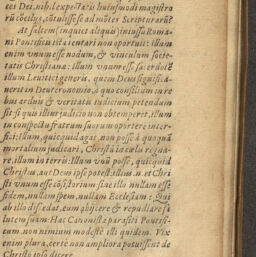 tes Dei. nihil expectatis huiusmodi magistro
rū cœtibus, cōtulisse se ad mōtes Scripturarū?
At saltem (inquiet aliquis) iniussu Roma-
ni Pontificis ista tentari non oportuit: illum
enim vnum esse nodum, & vinculum socie-
tatis Christianæ: illum vnum esse sacerdotē
illum Leuitici generis, quem Deus significa-
uerit in Deuteronomio, a quo consilium in re
bus arduis & veritatis iudicium petendum
sit: si quis illius iudicio non obtemperet, illum
in conspectu fratrum suorum oportere interfi-
ci: Illum, quicquid agat, non posse à quoquā
mortalium iudicari, Christū in cœlis regna-
re, illum in terris: Illum vnū posse, quicquid
Christus, aut Deus ipse potest: illius .n. et Chri
sti vnum esse cōsistorium sine illo nullam esse
fidem, nullam spem, nullam Ecclesiam: Qui
ab illo discedat, eum abijcere & repudiare sa
lutem suam: Hæc Canonistæ parasiti Pontifi-
cum, non nimium modestè illi quidem. Vix
enim plura, certè non ampliora potuissent de
Christo ipso dicere.